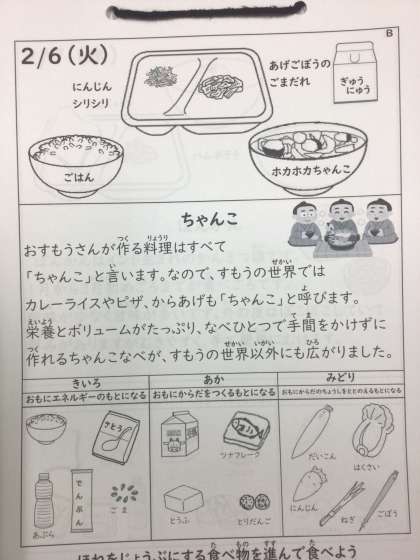 B
2/6(火)
にんじん
シリシリ
あげごぼうの
ごまだれ
ぎゅう
にゅう
ごはん
ホカホカちゃんこ
ちゃんこ
おすもうさんが作る料理はすべて
「ちゃんこ」と言います。なので、すもうの世界では
カレーライスやピザ、からあげも「ちゃんこ」と呼びます。
栄養とボリュームがたっぷり、なべひとつで手間をかけずに
作れるちゃんこなべが、すもうの世界以外にも広がりました。
きいろ
おもにエネルギーのもとになる
あか
おもにからだをつくるもとになる
みどり
おもにからだのちょうしをととのえるもとになる
さとう
あぶら
でんぷん
ごま
ツナフレーク
とうふ
とりだんご
だいこん
はくさい
にんじん
ねぎ
ごぼう
ほねをじょうぶにする食べ物を進んで食べよう